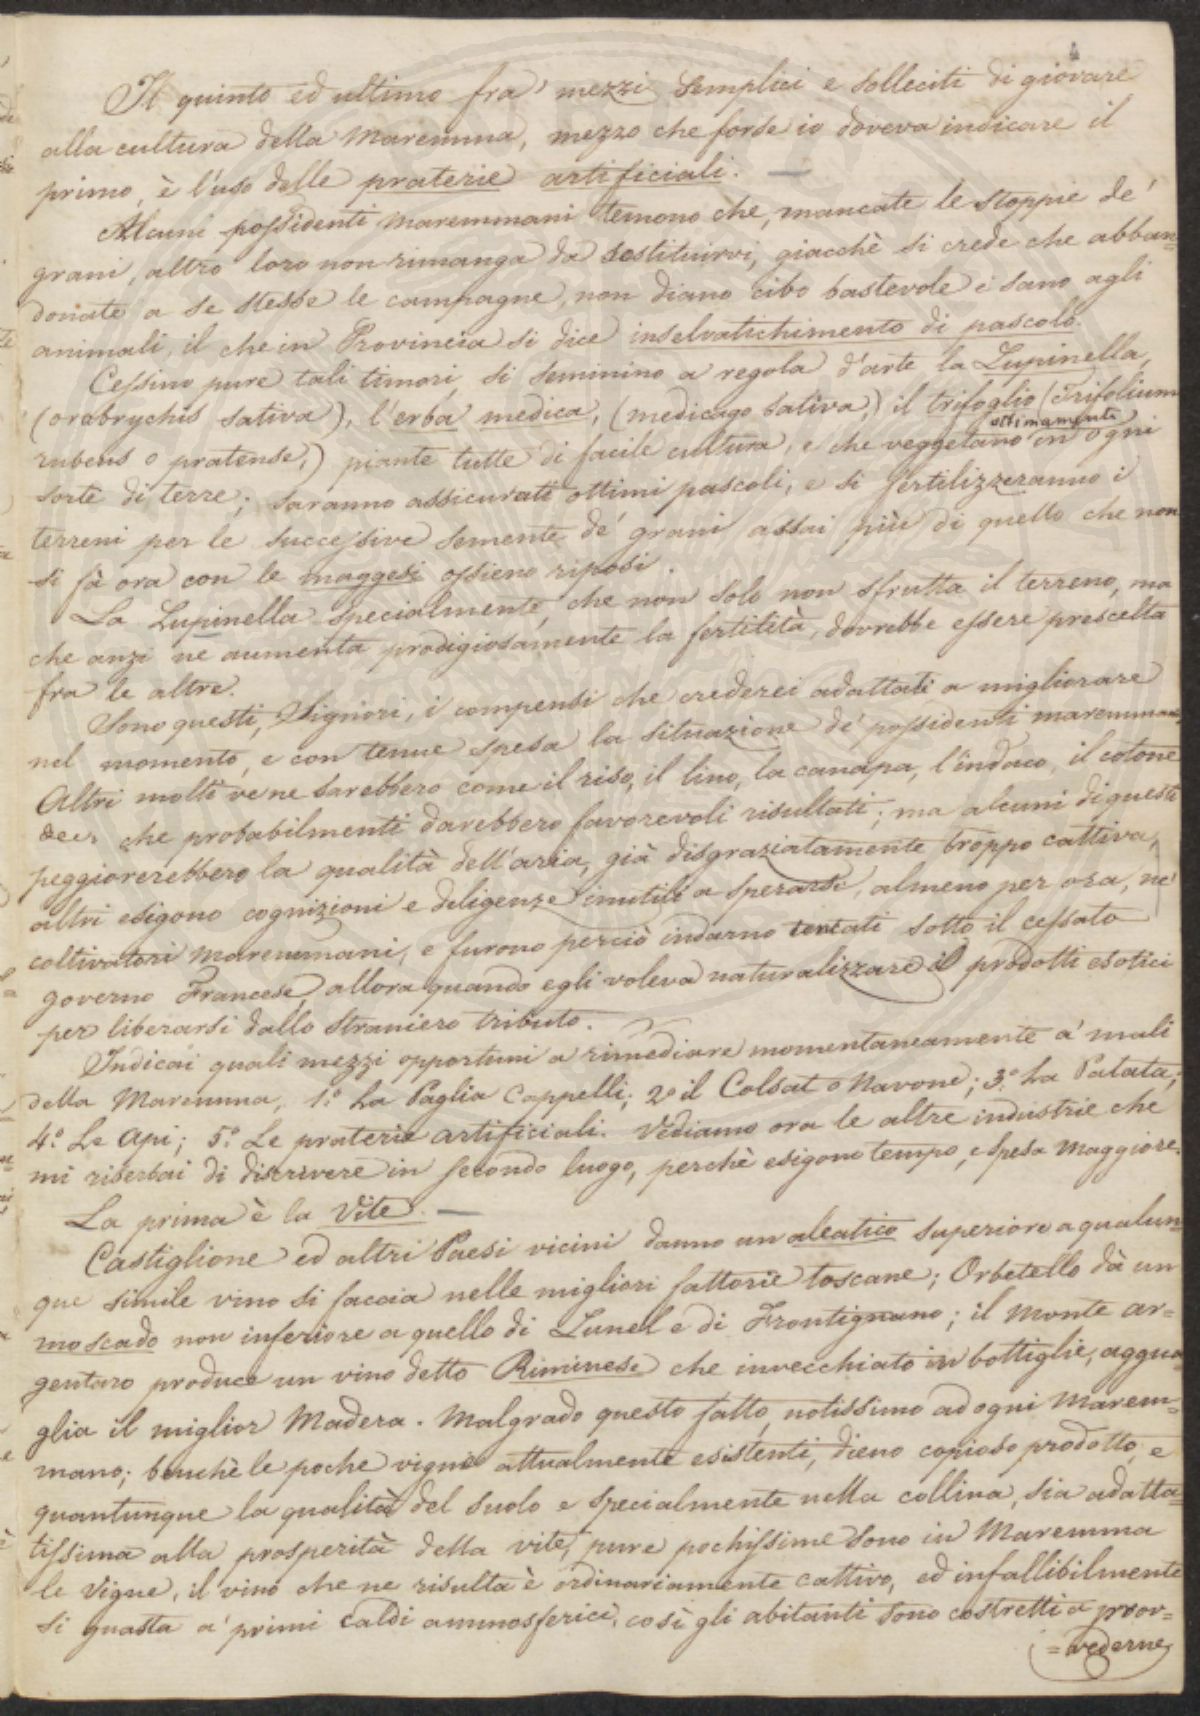 4
Il quinto ed ultimo fra' mezzi semplici e solleciti di giovare
alla cultura della Maremma, mezzo che forse io doveva indicare il
primo, è l'uso delle praterie artificiali. —
Alcuni possidenti maremmani temono che, mancate le stoppie de'
grani, altro loro non rimanga da sostituirvi, giacchè si crede che abban=
donate a se stesse le campagne, non diano cibo bastevole e sano agli
animali, il che in Provincia si dice inselvatichimento di pascolo.
Cessino pure tali timori, si seminino a regola d'arte la Lupinella,
(orabrychis sativa), l'erba medica, (medicago sativa,) il trifoglio (Trifolium
rubens o pratense,) piante tutte di facile cultura, e che veggetano ottimamente in ogni
sorte di terre; saranno assicurati ottimi pascoli, e si fertilizzeranno i
terreni per le successive semente de' grani assai più di quello che non
si fà ora con le maggesi ossieno riposi.
La Lupinella specialmente, che non solo non sfrutta il terreno, ma
che anzi ne aumenta prodigiosamente la fertilità, dovrebbe essere prescelta
fra le altre.
Sono questi, Signori, i compensi che crederei adattati a migliorare
nel momento, e con tenue spesa la situazione de' possidenti maremmani
Altri molti ve ne sarebbero come il riso, il lino, la canapa, l'indaco, il cotone
che probabilmenti darebbero favorevoli risultati; ma alcuni di questi
peggiorerebbero la qualità dell'aria, già disgraziatamente troppo cattiva,
altri esigono cognizioni e diligenze inutili a sperarsi, almeno per ora, ne'
coltivatori maremmani, e furono perciò indarno tentati sotto il cessato
governo Francese, allora quando egli voleva naturalizzare i prodotti esotici
per liberarsi dallo straniero tributo.
Indicai quali mezzi opportuni a rimediare momentaneamente a' mali
della Maremma, 1.° La Paglia Cappelli; 2° il Colsat o Navone; 3.° La Patata;
4.° Le Api; 5.° Le praterie artificiali. Vediamo ora le altre industrie che
mi riserbai di discrivere in secondo luogo, perchè esigono tempo, e spesa maggiore.
La prima è la Vite. —
Castiglione ed altri Paesi vicini danno un aleatico superiore a qualun=
que simile vino si faccia nelle migliori fattorie toscane; Orbetello dà un
moscado non inferiore a quello di Lunel e di Frontignano; il Monte ar=
gentaro produce un vino detto Riminese che invecchiato in bottiglie, aggua
glia il miglior Madera. Malgrado questo fatto, notissimo ad ogni Marem=
mano; benchè le poche vigne attualmente esistenti, dieno copioso prodotto, e
quantunque la qualità del suolo e specialmente nella collina, sia adatta=
tissima alla prosperità della vite, pure pochissime sono in Maremma
le vigne, il vino che ne risulta è ordinariamente cattivo, ed infallibilmente
si guasta a' primi caldi ammosferici, così gli abitanti sono costretti a prov=
=vederne